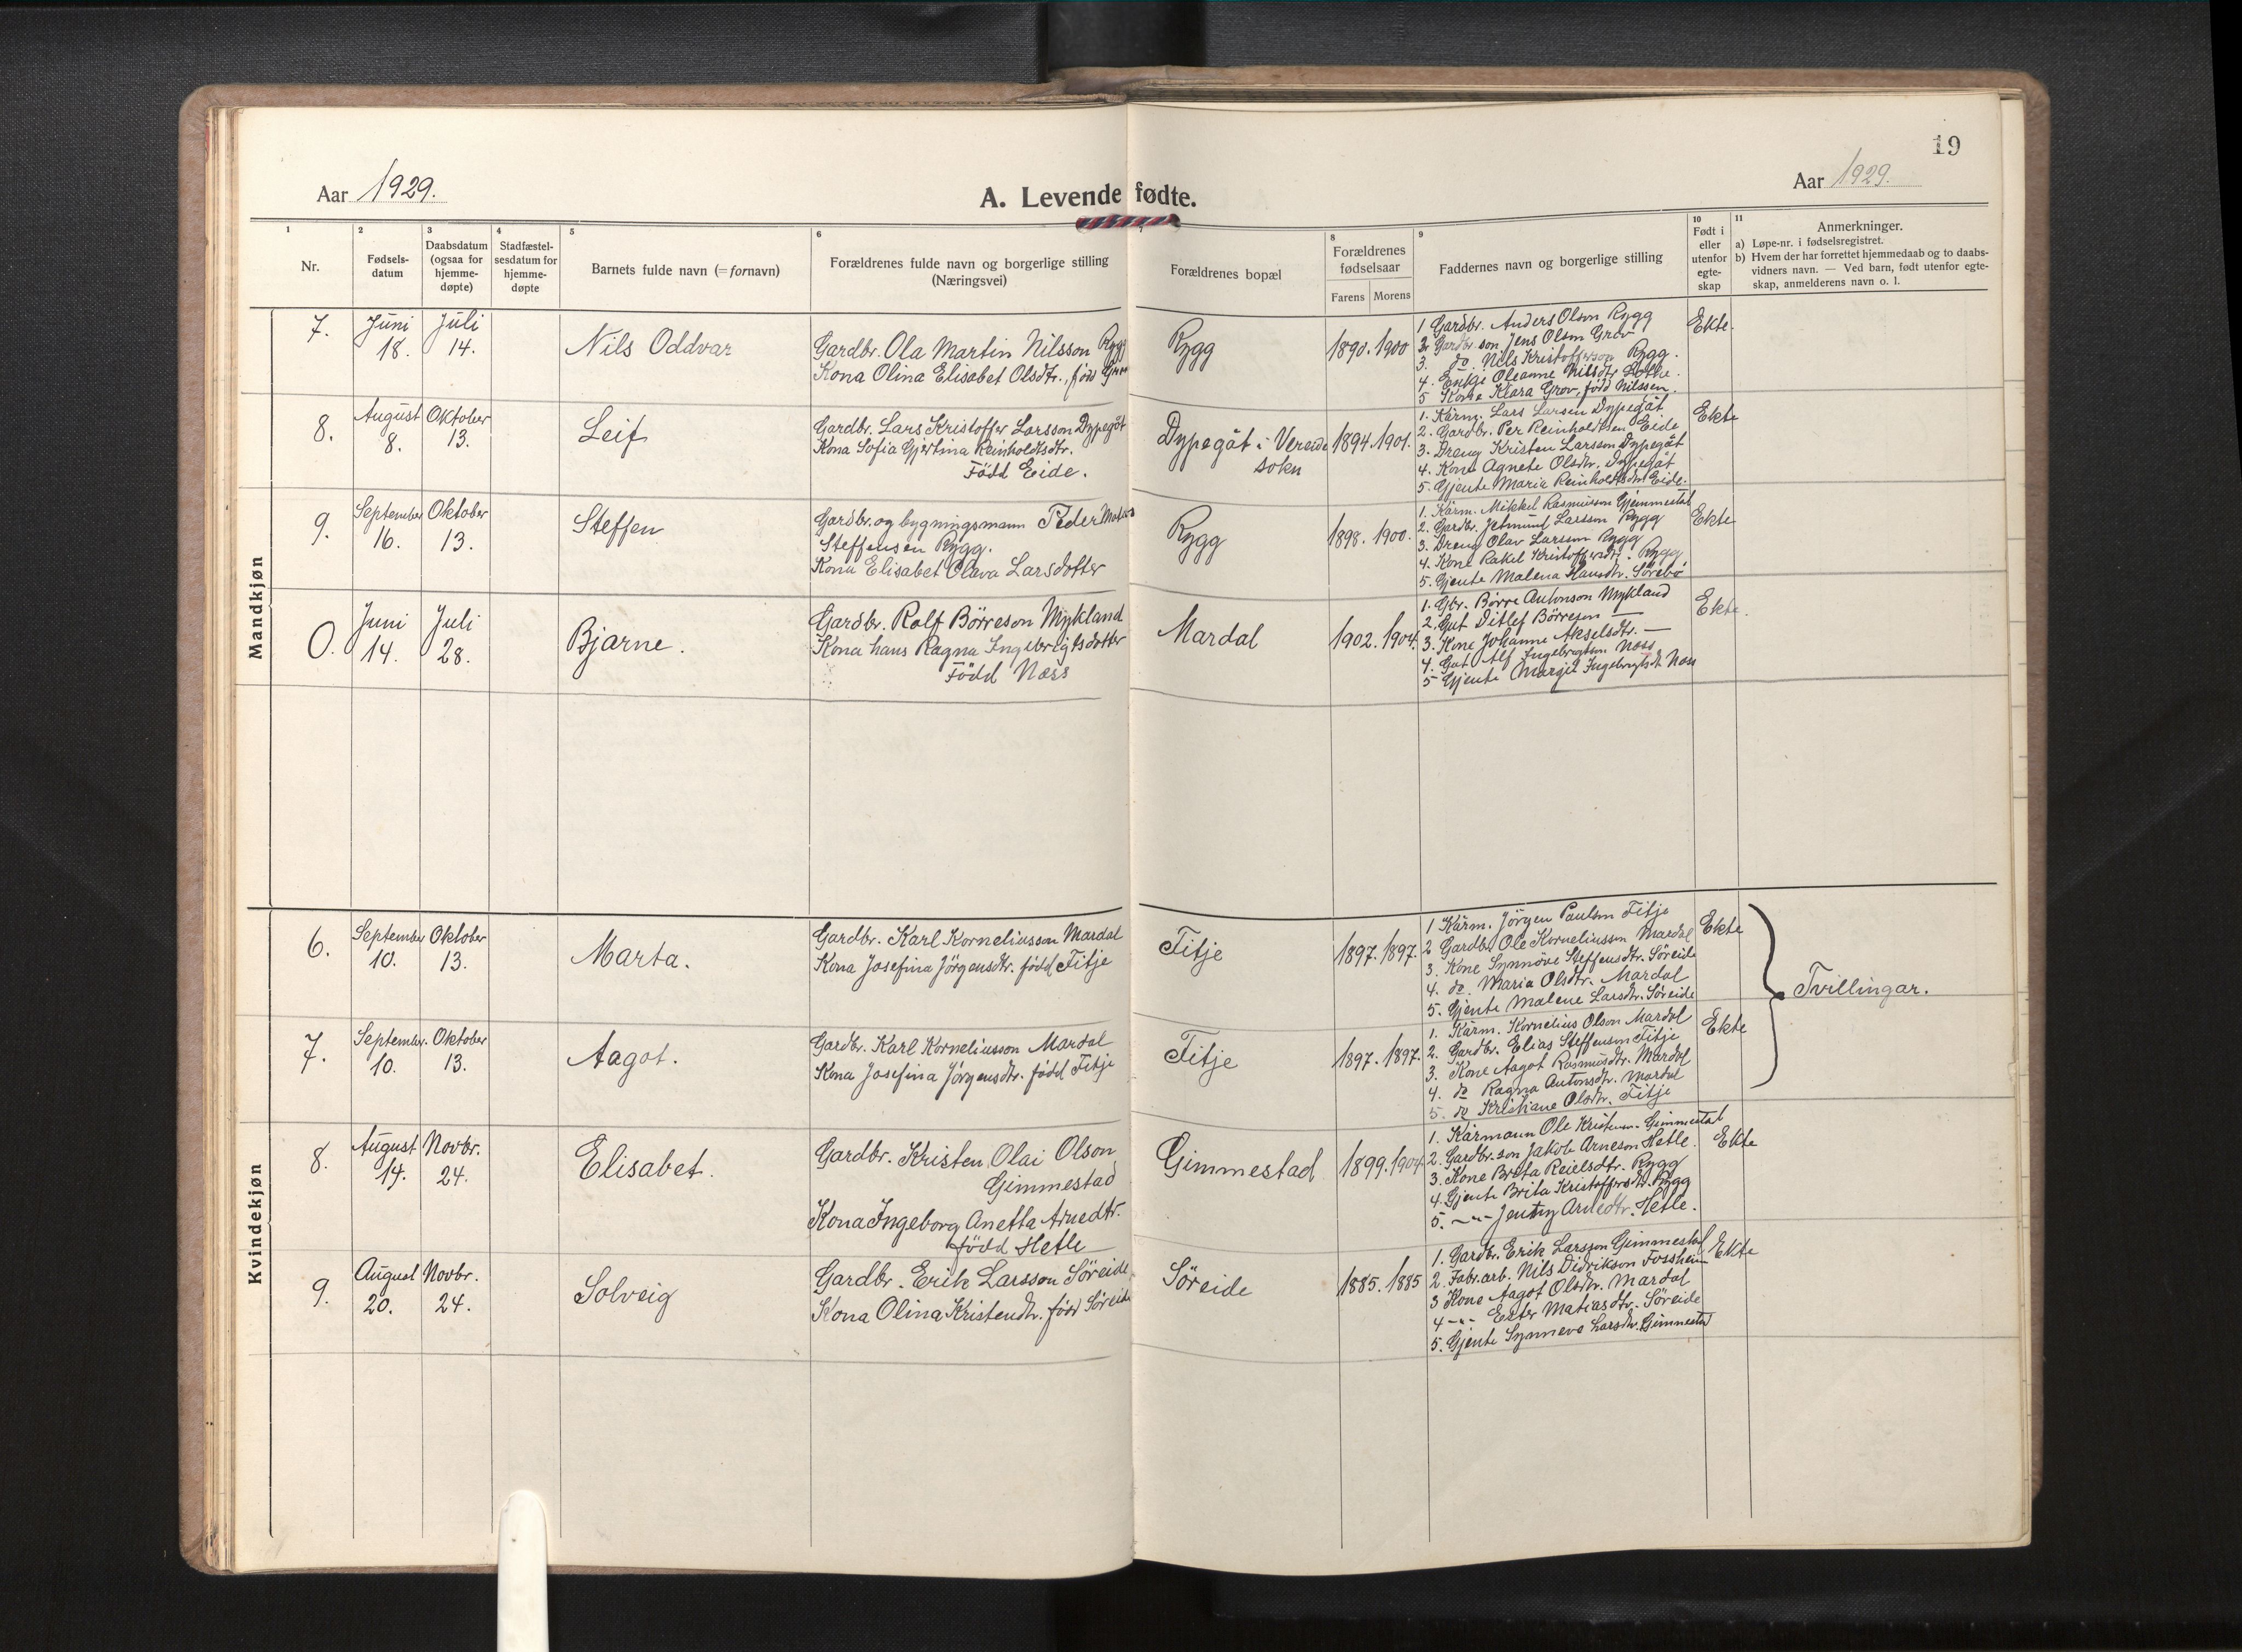 19
Aar 1929.
A. Levende fødte.
Aar 1929.
1
Nr.
2
Fødsels-
datum
3
Daabsdatum
(ogsaa for
hjemme-
døpte)
4
Stadfæstel-
sesdatum for
hjemme-
døpte
5
Barnets fulde navn (= fornavn)
6
Forældrenes fulde navn og borgerlige stilling
(Næringsvei)
Forældrenes bopæl
8
Forældrenes
fødselsaar
Farens
Morens
9
Faddernes navn og borgerlige stilling
10
Født i
eller
utenfor
egte-
skap
11
Anmerkninger.
a) Løpe-nr. i fødselsregistret.
b) Hvem der har forrettet hjemmedaab og to daabs-
vidners navn. — Ved barn, født utenfor egte-
skap, anmelderens navn o. l.
Mandkjøn
7.
Juni
18.
Juli
14.
Nils Oddvar
Gardbr. Ola Martin Nilsson Rygg
Kona Olina Elisabet Olsdtr., född Grov
Rygg
1890. 1900
1 Gardbr. Anders Olson Rygg
2 Gardbr. son Jens Olson Grov
3. do. Nils Kristofferson Rygg.
4. Enkje Oleanne Nilsdtr. Lothe.
5 Kone Klara Grov, född Nilssen.
Ekte.
8.
August
8.
Oktober
13.
Leif
Gardbr. Lars Kristoffer Larsson Dypegåt
Kona Sofia Gjertina Reinholdtsdtr.
Född Eide.
Dypegåt i Vereide
sokn
1894. 1901.
1. Kårm. Lars Larsen Dypegåt
2. Gardbr. Per Reinholdtsen Eide
3. Dreng Kristen Larsson Dypegåt
4. Kone Agnete Olsdtr. Dypegåt
5. Gjente Maria Reinholdtsdtr. Eide.
Ekte
9.
September
16.
Oktober
13.
Steffen
Gardbr. og bygningsmann Peder
Steffensen Rygg.
Kona Elisabet Olava Larsdotter
Rygg
1898. 1900.
1. Kårm. Mikkel Rasmusson Gjemmestad
2. Gardbr. Jetmund Larsson Rygg
3. Dreng Olav Larsson Rygg
4. Kone Rakel Kristoffersdtr. Rygg
5. Gjente Malena Hansdtr. Sörebö
Ekte
0.
Juni
14.
Juli
28.
Bjarne.
Gardbr. Rolf Börreson Mykland
Kona hans Ragna Ingebrigtsdotter
Född Næss
Mardal
1902. 1904.
1. Gbr. Börre Antonson Mykland
2. Gut Ditlef Börreson —
3. Kone Johanne Akselsdtr. —
4. Gut Alf Ingebrigtson Næss
5 Gjente Margit Ingebrigtsdt. Næss
Ekte.
Kvindekjøn
6.
September
10.
Oktober
13.
Marta.
Gardbr. Karl Korneliusson Mardal
Kona Josefina Jörgensdtr. född Fitje
Fitje
1897. 1897.
1 Kårm. Jörgen Paulson Fitje
2 Gardbr. Ole Korneliusson Mardal
3. Kone Synnöve Steffensdtr. Söreide
4. do. Maria Olsdtr. Mardal
5. Gjente Malene Larsdtr. Söreide
Ekte
Tvillingar.
7.
September.
10.
Oktober
13.
Aagot.
Gardbr. Karl Korneliusson Mardal
Kona Josefina Jörgensdtr. född Fitje
Fitje
1897. 1897.
1. Kårm. Kornelius Olson Mardal
2. Gardbr. Elias Steffenson Fitje
3. Kone Aagot Rasmusdtr. Mardal
4. do Ragna Antonsdtr. Mardal
5. do Kristiane Olsdtr. Fitje
Ekte
8.
August
14.
Novbr.
24.
Elisabet.
Gardbr. Kristen Olai Olson
Gimmestad
Kona Ingeborg Anetta Arnedtr.
född Hetle
Gimmestad
1899. 1904
1. Kårmann Ole Kristenson Gimmestad
2. Gardbr. son Jakob Arneson Hetle.
3. Kone Brita Reielsdtr. Rygg
4. Gjente Brita Kristoffersdtr. Rygg
5. —"— Jenny Arnedtr. Hetle.
Ekte
9.
August
20.
Novbr.
24.
Solveig
Gardbr. Erik Larsson Söreide
Kona Olina Kristendtr. född Söreide
Söreide
1885. 1885
1. Gardbr. Erik Larsson Gimmestad
2. Fabr.arb. Nils Didrikson Fossheim
3 Kone Aagot Olsdtr. Mardal
4 —"— Ester Matiasdtr. Söreide
5. Gjente Synneve Larsdtr. Gimmestad
Ekte